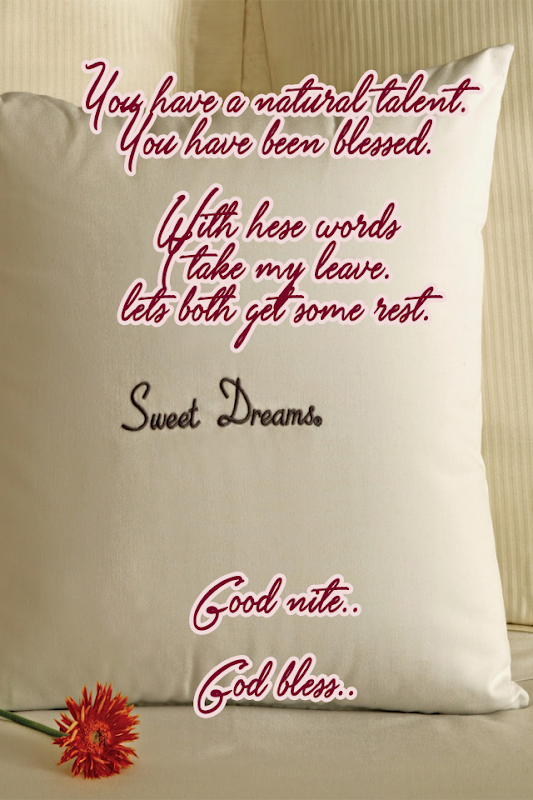 You have a natural talent.
You have been blessed.
With hese words
I take my leave.
lets both get some rest.
Sweet Dreams®
Good nite..
God bless..